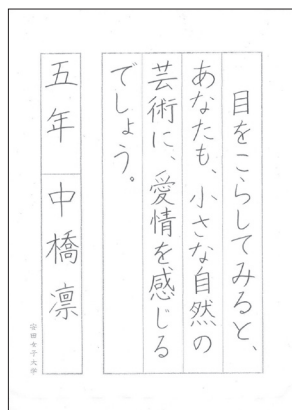 目をこらしてみると、
あなたも、小さな自然の
芸術に、愛情を感じる
でしょう。
五年 中橋凛
安田女子大学